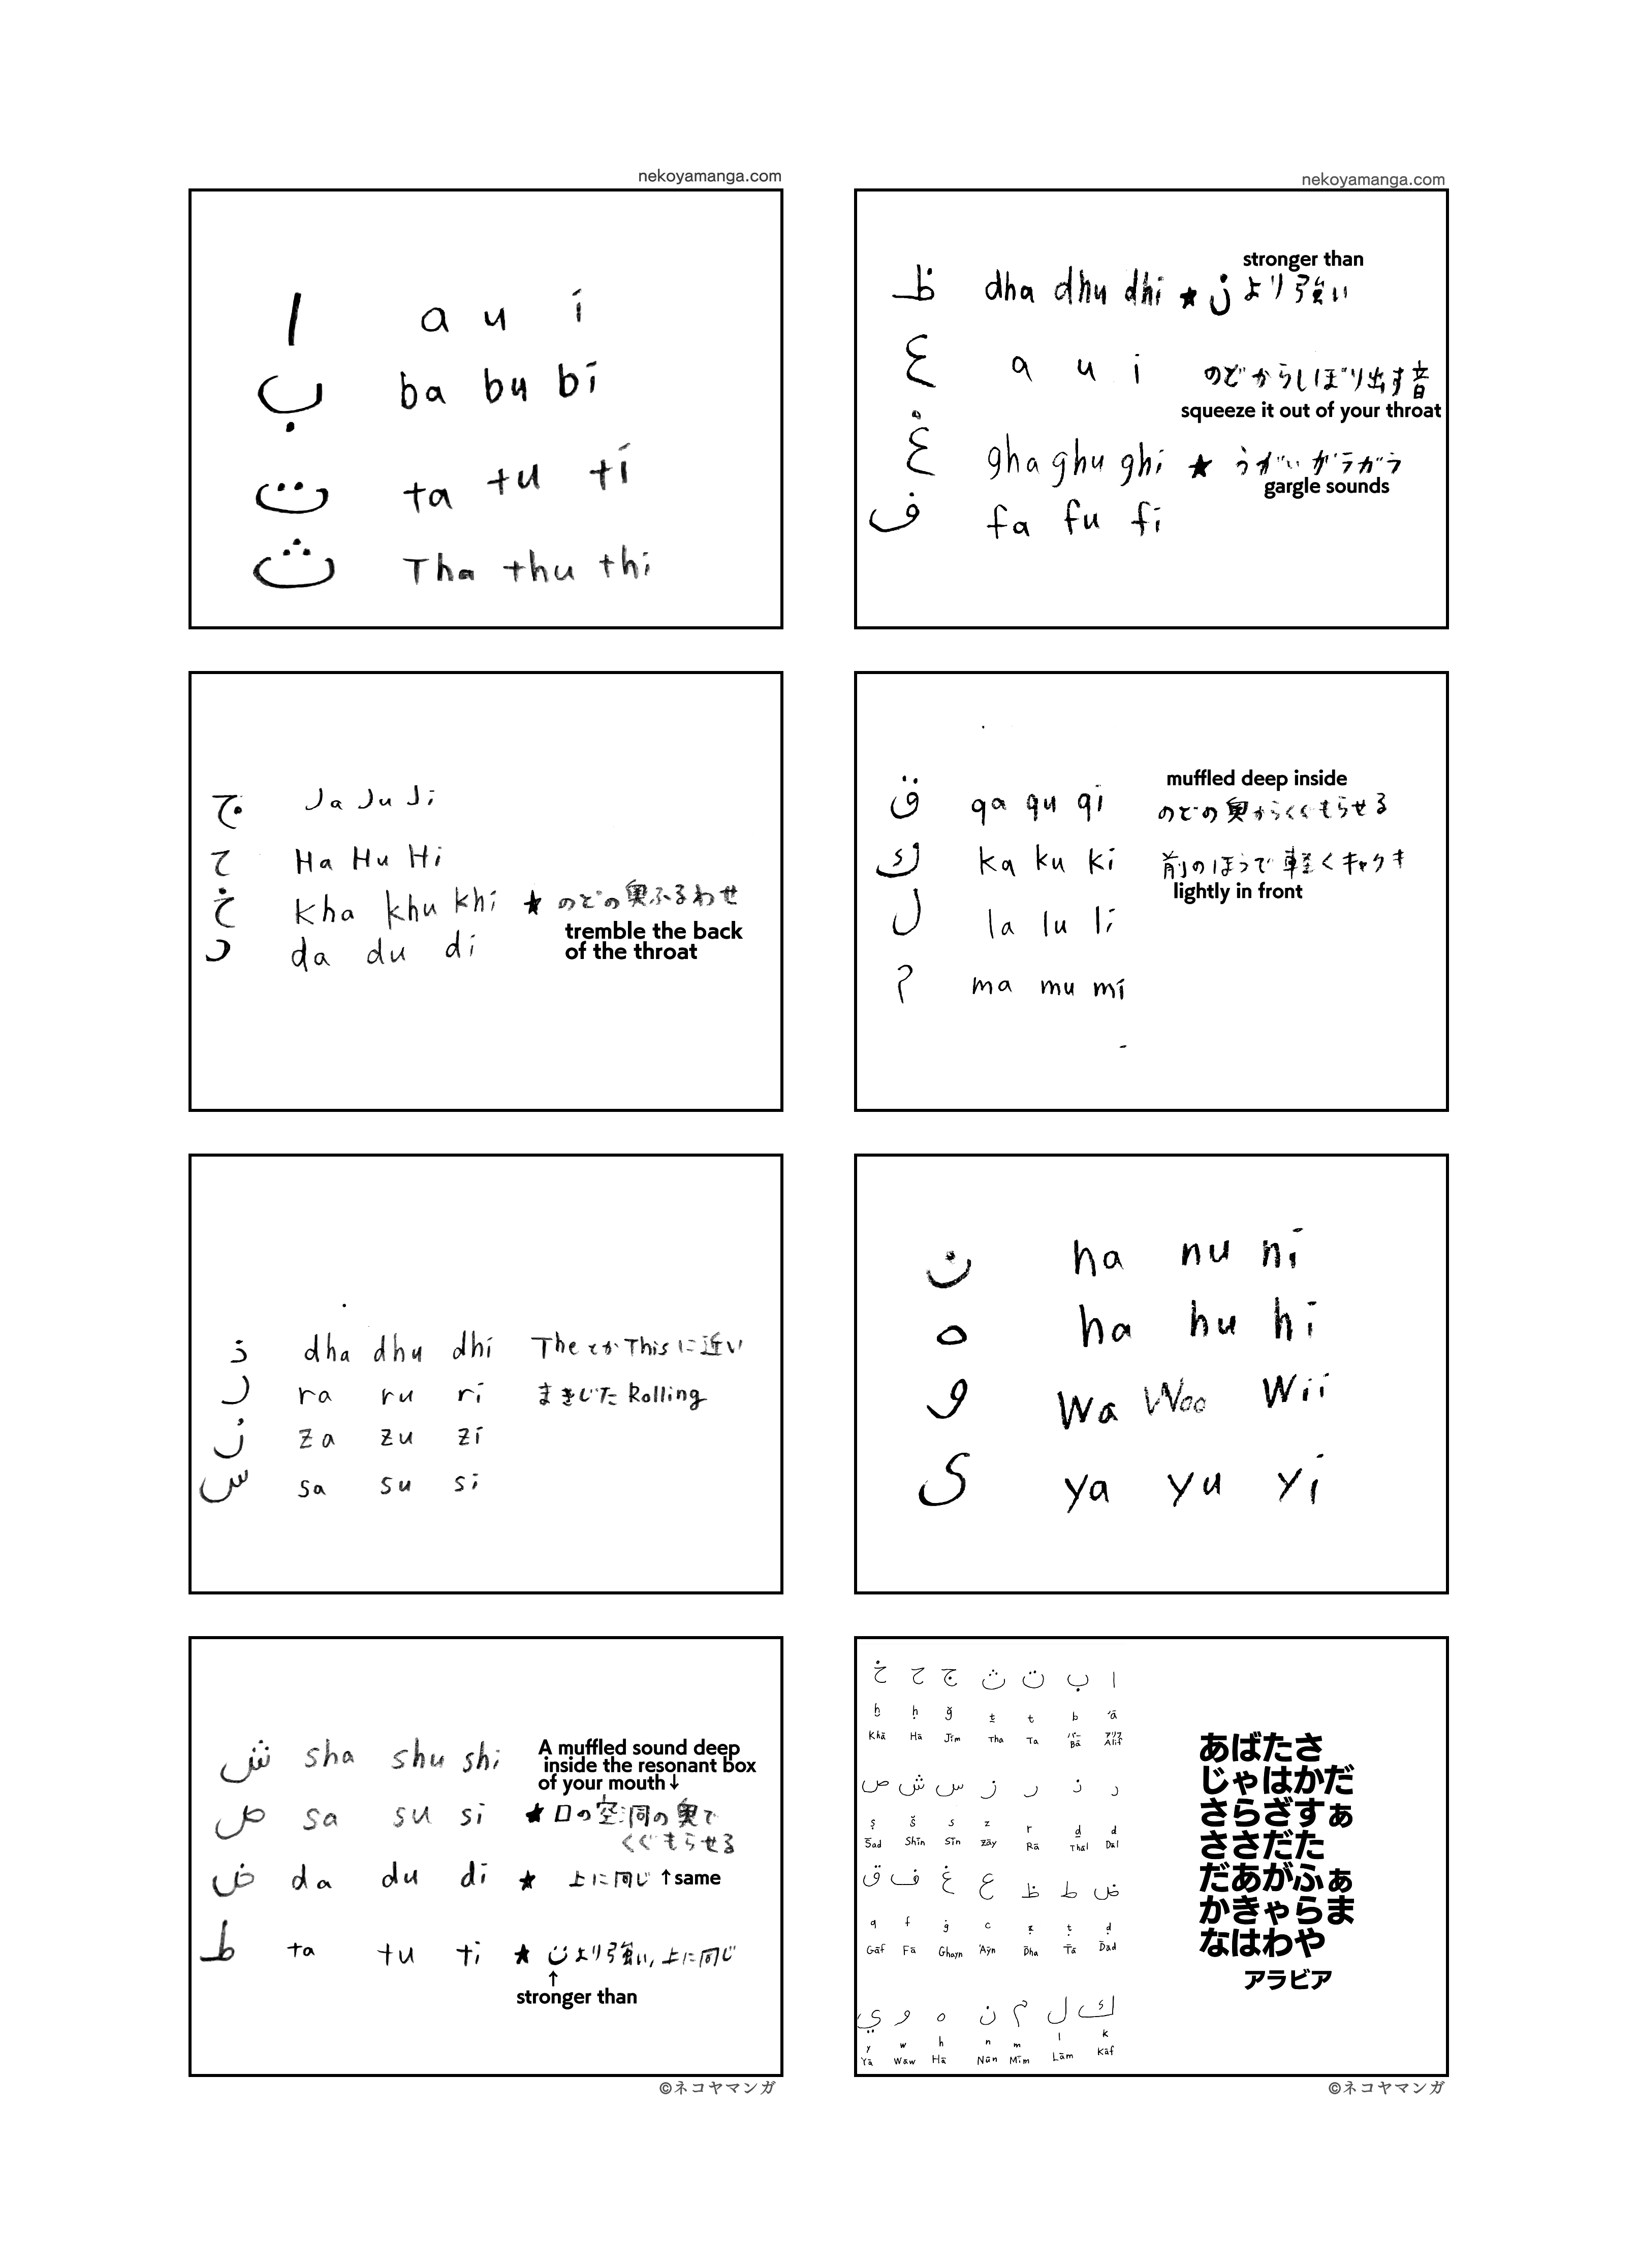 nekoyamanga.com
ا a u i
ب ba bu bi
ت ta tu ti
ث Tha thu thi
ج Ja Ju Ji
ح Ha Hu Hi
خ kha khu khi ★ のどの奥ふるわせ
tremble the back
of the throat
د da du di
ذ dha dhu dhi TheとかThisに近い
ر ra ru ri まきじた Rolling
ز za zu zi
س sa su si
ش sha shu shi
A muffled sound deep
inside the resonant box
of your mouth↓
ص sa su si ★口の空洞の奥で
くぐもらせる
ض da du di ★ 上に同じ ↑same
ط ta tu ti ★ ت より強い, 上に同じ
↑
stronger than
©ネコヤマンガ
nekoyamanga.com
stronger than
ظ dha dhu dhi ★ ذ より強い
ع a u i のどからしぼり出す音
squeeze it out of your throat
غ gha ghu ghi ★ うがいガラガラ
gargle sounds
ف fa fu fi
muffled deep inside
ق qa qu qi のどの奥からくぐもらせる
ك ka ku ki 前のほうで軽くキャクキ
lightly in front
ل la lu li
م ma mu mi
ن na nu ni
ه ha hu hi
و Wa Woo Wii
ى ya yu yi
ا ب ت ث ج ح خ
'ā b t ṯ ǧ ḥ ḫ
アリフ バー
Alif Bā Ta Tha Jīm Hā Khā
د ذ ر ز س ش ص
d ḏ r z s š ṣ
Dāl Thāl Rā Zāy Sīn Shīn Ṣad
ض ط ظ ع غ ف ق
ḍ ṭ ẓ c ġ f q
Ḍad Ṭā Dha 'Aÿn Ghayn Fā Gāf
ك ل م ن ه و ي
k l m n h w y
Kāf Lām Mīm Nūn Hā Wāw Yā
あばたさ
じゃはかだ
さらざすぁ
ささだた
だあがふぁ
かきゃらま
なはわや
アラビア
©ネコヤマンガ